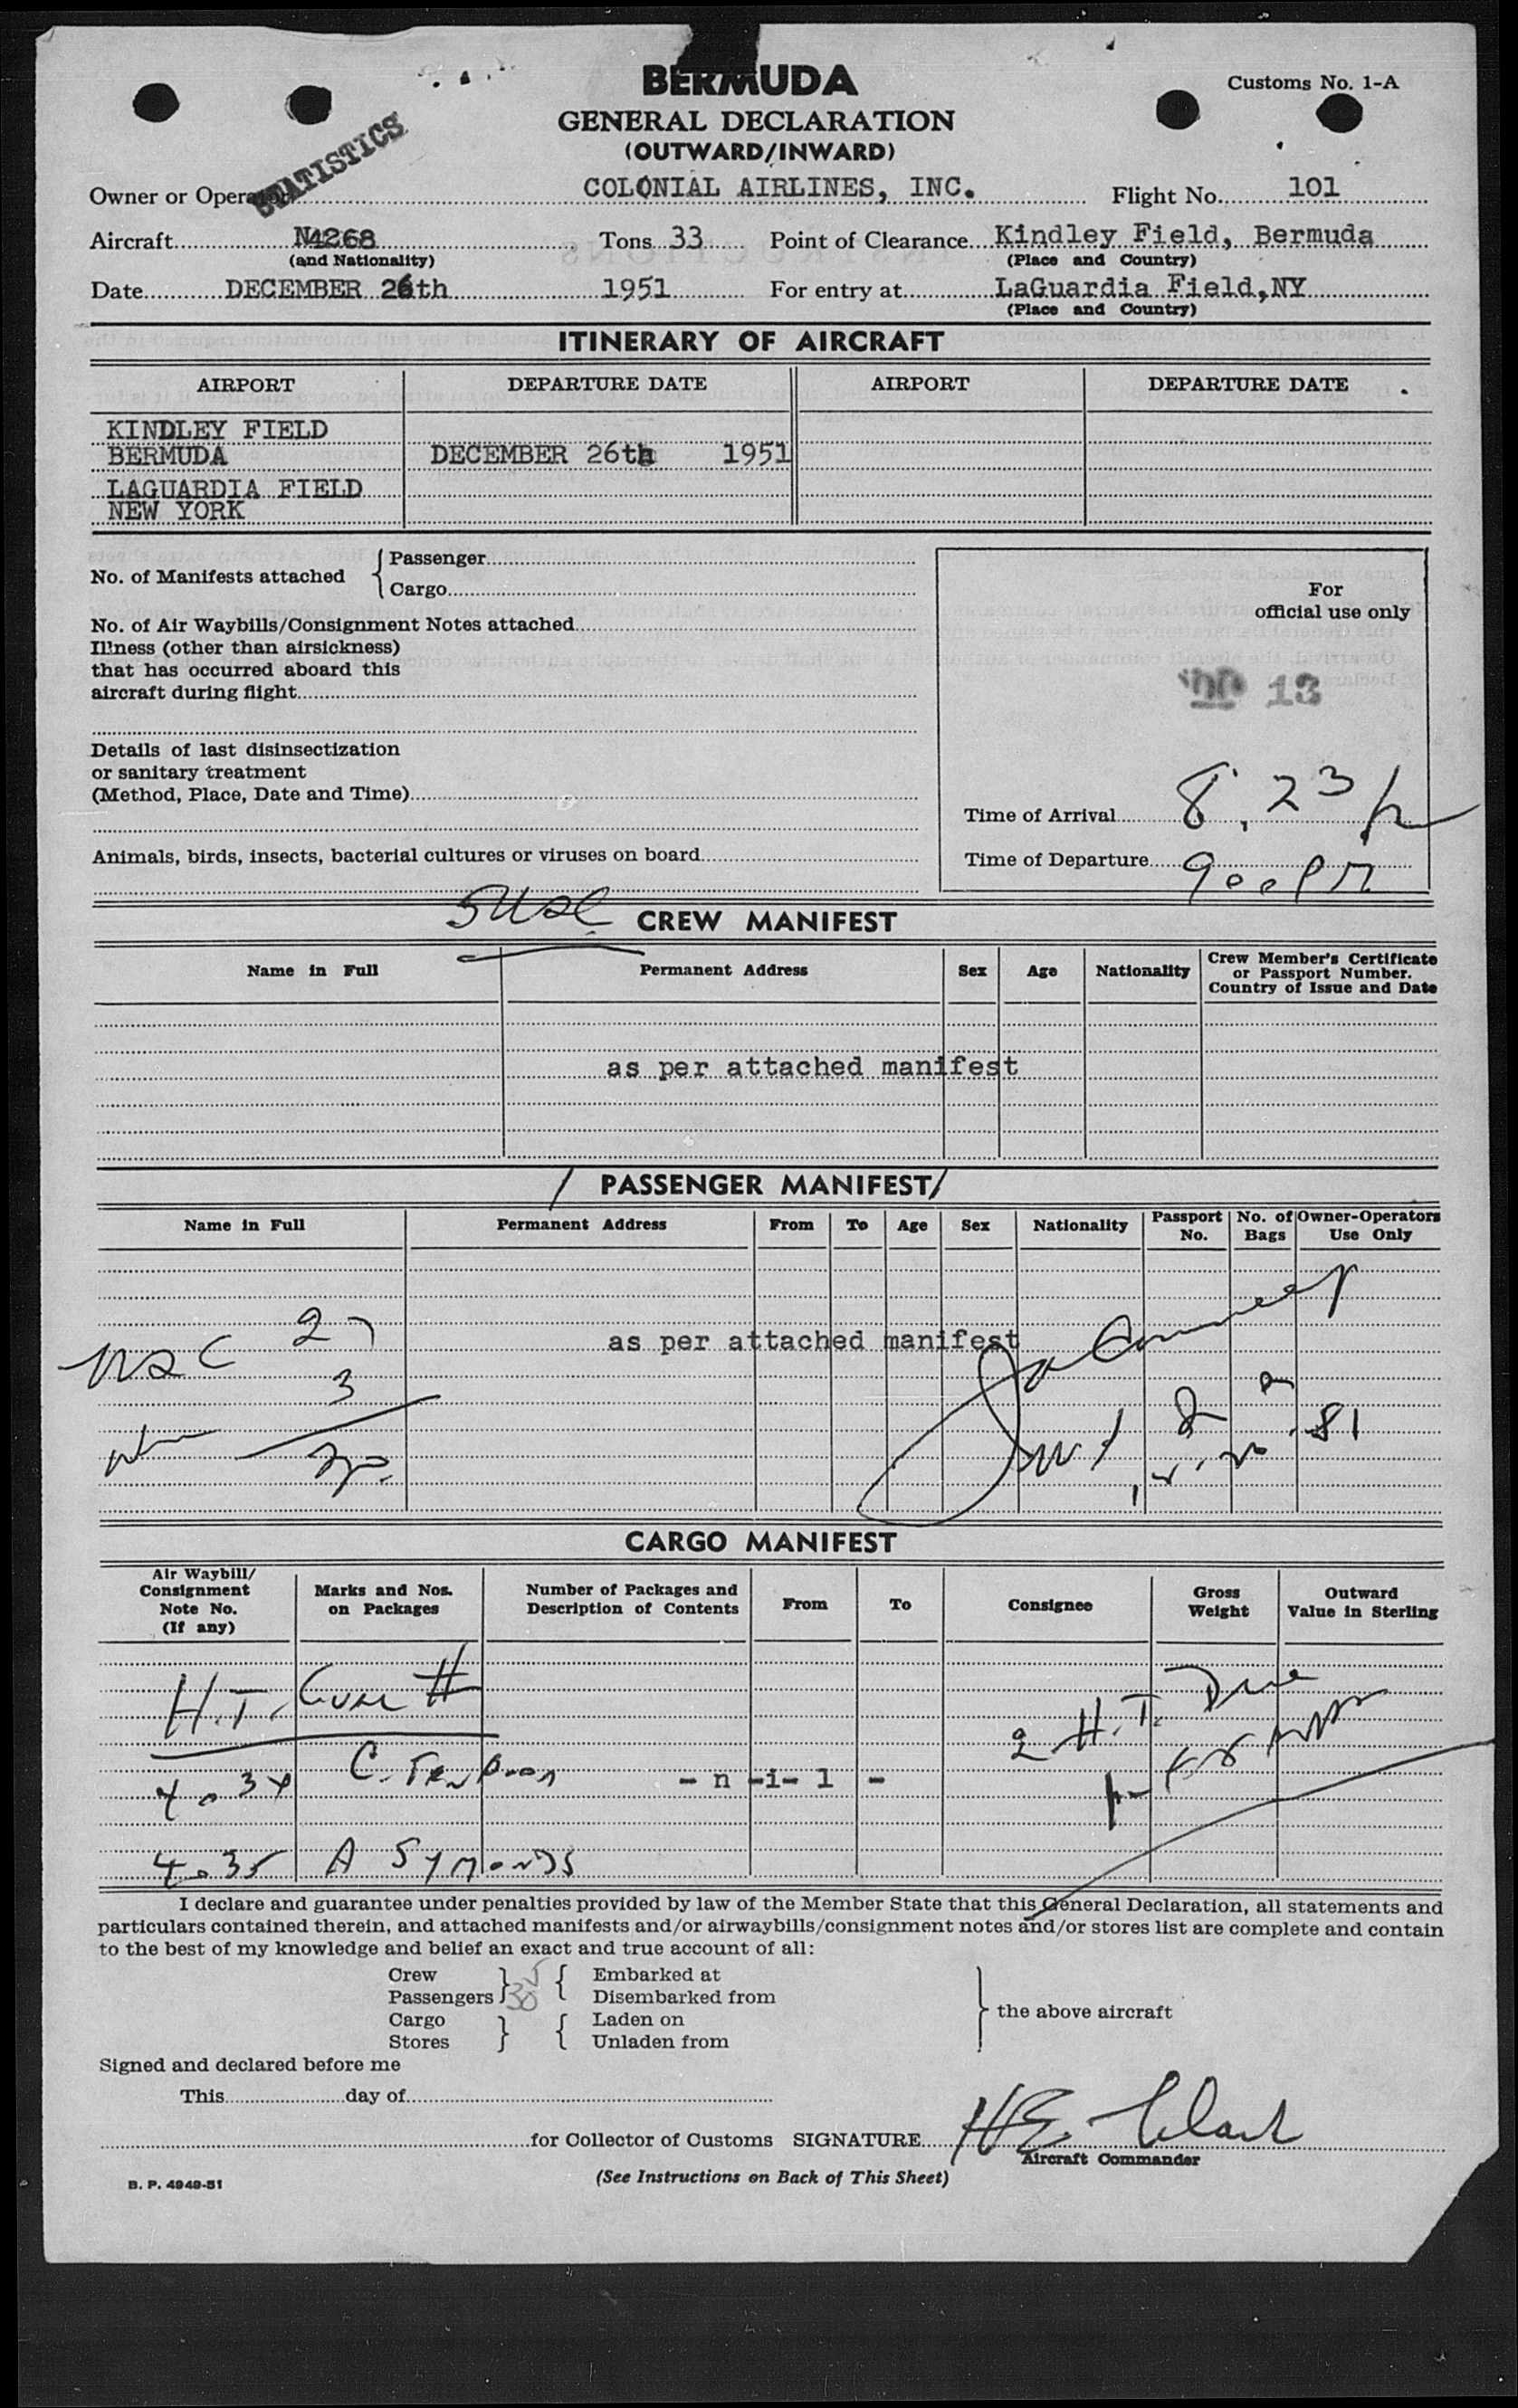 BERMUDA
Customs No. 1-A
GENERAL DECLARATION
(OUTWARD/INWARD)
STATISTICS
Owner or Operator COLONIAL AIRLINES, INC. Flight No. 101
Aircraft N4268 Tons 33 Point of Clearance Kindley Field, Bermuda
(and Nationality) (Place and Country)
Date DECEMBER 26th 1951 For entry at LaGuardia Field,NY
(Place and Country)
ITINERARY OF AIRCRAFT
AIRPORT DEPARTURE DATE AIRPORT DEPARTURE DATE
KINDLEY FIELD
BERMUDA DECEMBER 26th 1951
LAGUARDIA FIELD
NEW YORK
No. of Manifests attached { Passenger
Cargo
For
official use only
No. of Air Waybills/Consignment Notes attached
Illness (other than airsickness)
that has occurred aboard this
aircraft during flight
13
Details of last disinsectization
or sanitary treatment
(Method, Place, Date and Time)
Time of Arrival 8.23 p
Animals, birds, insects, bacterial cultures or viruses on board
Time of Departure 900 PM
5 USC CREW MANIFEST
Name in Full Permanent Address Sex Age Nationality Crew Member's Certificate
or Passport Number.
Country of Issue and Date
as per attached manifest
PASSENGER MANIFEST
Name in Full Permanent Address From To Age Sex Nationality Passport No. No. of Bags Owner-Operators Use Only
USC 27
as per attached manifest
3
30
81
CARGO MANIFEST
Air Waybill/
Consignment
Note No.
(If any)
Marks and Nos.
on Packages
Number of Packages and
Description of Contents
From To Consignee Gross
Weight
Outward
Value in Sterling
H.T.
2 H.T.
4034 C.
- n -i- l -
4035 A Symonds
I declare and guarantee under penalties provided by law of the Member State that this General Declaration, all statements and
particulars contained therein, and attached manifests and/or airwaybills/consignment notes and/or stores list are complete and contain
to the best of my knowledge and belief an exact and true account of all:
Crew } 5 { Embarked at
Passengers } 30 { Disembarked from
Cargo } { Laden on
Stores } { Unladen from
} the above aircraft
Signed and declared before me
This day of
for Collector of Customs SIGNATURE HE Clark
Aircraft Commander
B. P. 4949-51
(See Instructions on Back of This Sheet)